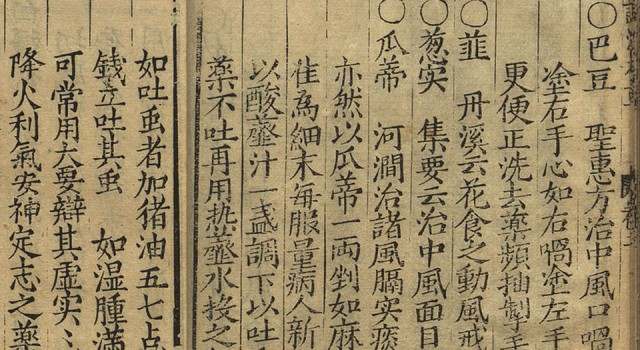 ○巴豆　聖惠方治中風口喎
塗右手心如右喎塗左手
更便正洗去藥頻抽掣手
○韮　丹溪云花食之動風戒
○葱实　集要云治中風面目
○瓜蒂　河澗治諸風膈实痰
亦然以瓜蒂一両剉如麻
為細末每服量病人新
以酸虀汁一盏調下以吐
藥不吐再用热虀水投之
如吐虫者加猪油五七点
錢立吐其虫　如湿腫满
可常用六要辯其虚实
降火利氣安神定志之藥